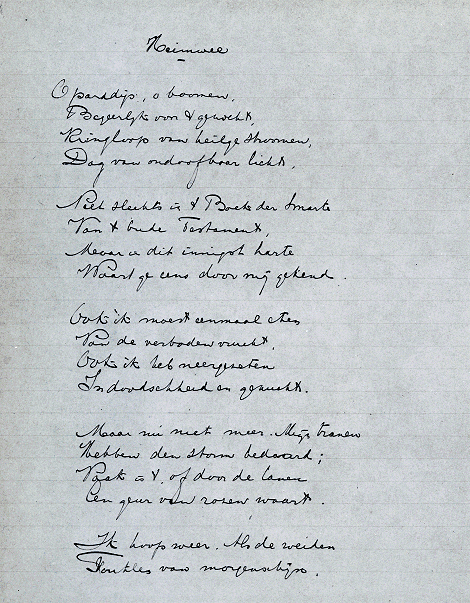 Heimwee

O paradijs, o boomen,
Begeerlijk voor 't gezicht,
Kringloop van heilge stroomen,
Dag van ondoofbaar licht,

Niet slechts in 't Boek der Smarte
Van 't Oude Testament,
Maar in dit innigst harte
Waart ge eens door mij gekend.

Ook ik moest eenmaal eten
Van de verboden vrucht,
Ook ik heb neergezeten
In doodschheid en gezucht.

Maar nu niet meer. Mijn tranen
Hebben den storm bedaard;
Vaak is 't, of door de lanen
Een geur van rozen waart.

Ik hoop weer. Als de weiden
van morgenschijn.